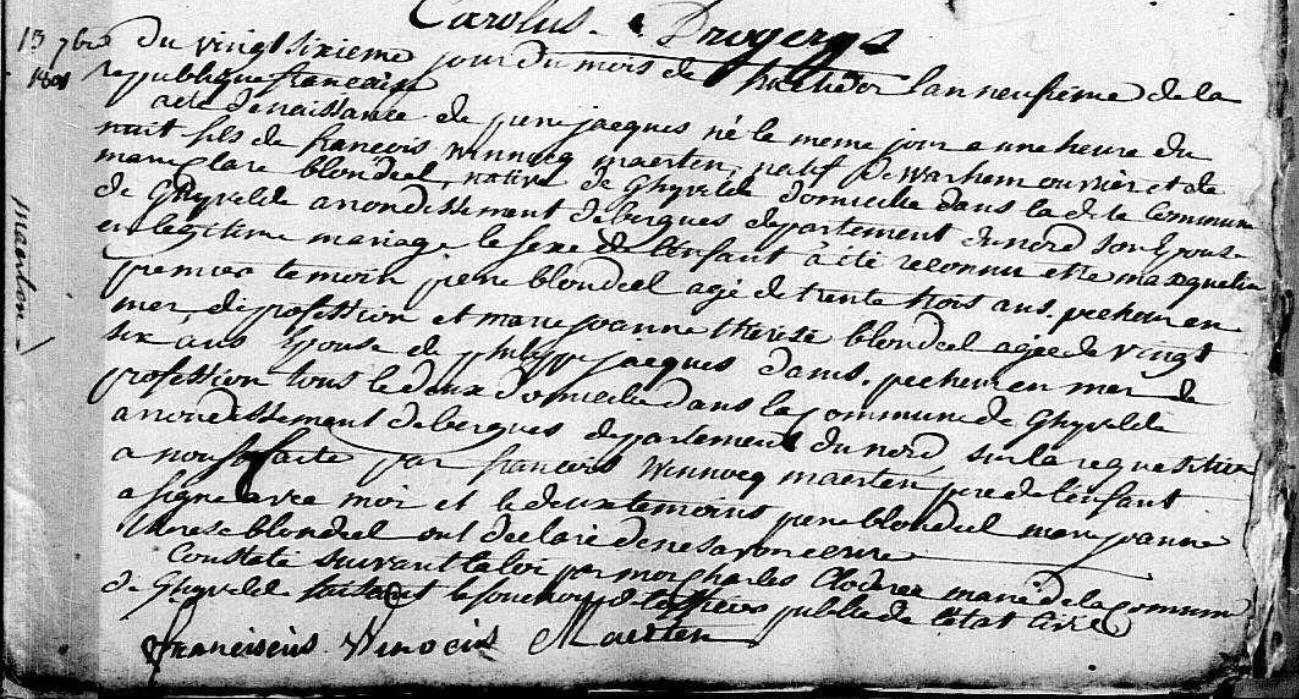 Carolus
13 7bre
1801
du vingt sixieme jour du mois de fructidor l'an neufieme de la
republique francaise
acte de naissance de piere jacques né le meme jour a une heure du
nuit fils de francois Winnocq maerten, natif de warhem ouvrier et de
marie clare blondeel, native de Ghyvelde domicilie dans la dite Commune
de Ghyvelde arrondissement de bergues departement du nord son Epouse
en legitime mariage le sexe de l'enfant à été reconnu etre masquelin
premier temoin piere blondeel agé de trente trois ans. pecheur en
mer, de profession et marie joanne therese blondeel agée de vingt
six ans Epouse de philippe jacques danis. pecheur en mer de
profession tous le deux domicilie dans la Commune de Ghyvelde
arrondissement de bergues departement du nord, sur la requisition
a nous faite par francois Winnocq maerten pere de l'enfant
a signe avec moi et le deux temoins piere blondeel marie joanne
therese blondeel ont declaré de ne savoir ecrire
Constaté suivant la loi par moi Charles maire de la Commune
de Ghyvelde faisant les fonctions d' publié de l'état Civil
franciscus Winocus Maerten
maerten